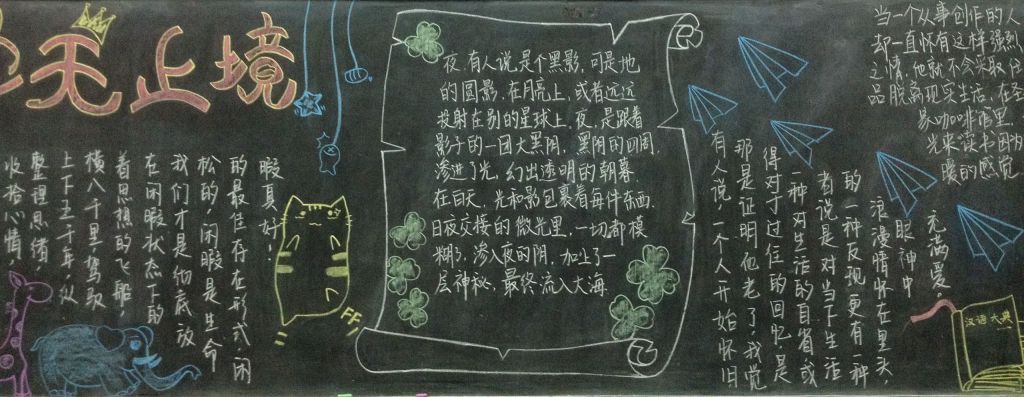 无止境
收拾心情
整理思绪
上下五千年，纵
横八千里驾驭
着思想的飞船，
在闲暇状态下的
我们才是彻底放
松的，闲暇是生命
的最佳存在形式，闲
暇真好！
夜，有人说是个黑影，可是地
的圆影，在月亮上，或者远远
投射在别的星球上，夜，是跟着
影子的一团大黑阴，黑阴的四周，
渗进了光，幻出透明的朝暮
在白天，光和影包裹着每件东西，
日夜交接的微光里，一切都模
糊了，渗入夜的阴，加上了一
层神秘，最终流入大海.
有人说一个人开始怀旧
那是证明他老了，我觉
得对于过往的回忆是
一种对生活的自省或
者说是对当下生活
的一种反现更有一种
浪漫情怀在里头，
眼神中
充满爱。
当一个从事创作的人
却一直怀有这样强烈
之情，他就不会采取任
品脱离现实生活，在圣
咖啡馆里，
先来读书因为
暖的感觉
汉语大典
FF